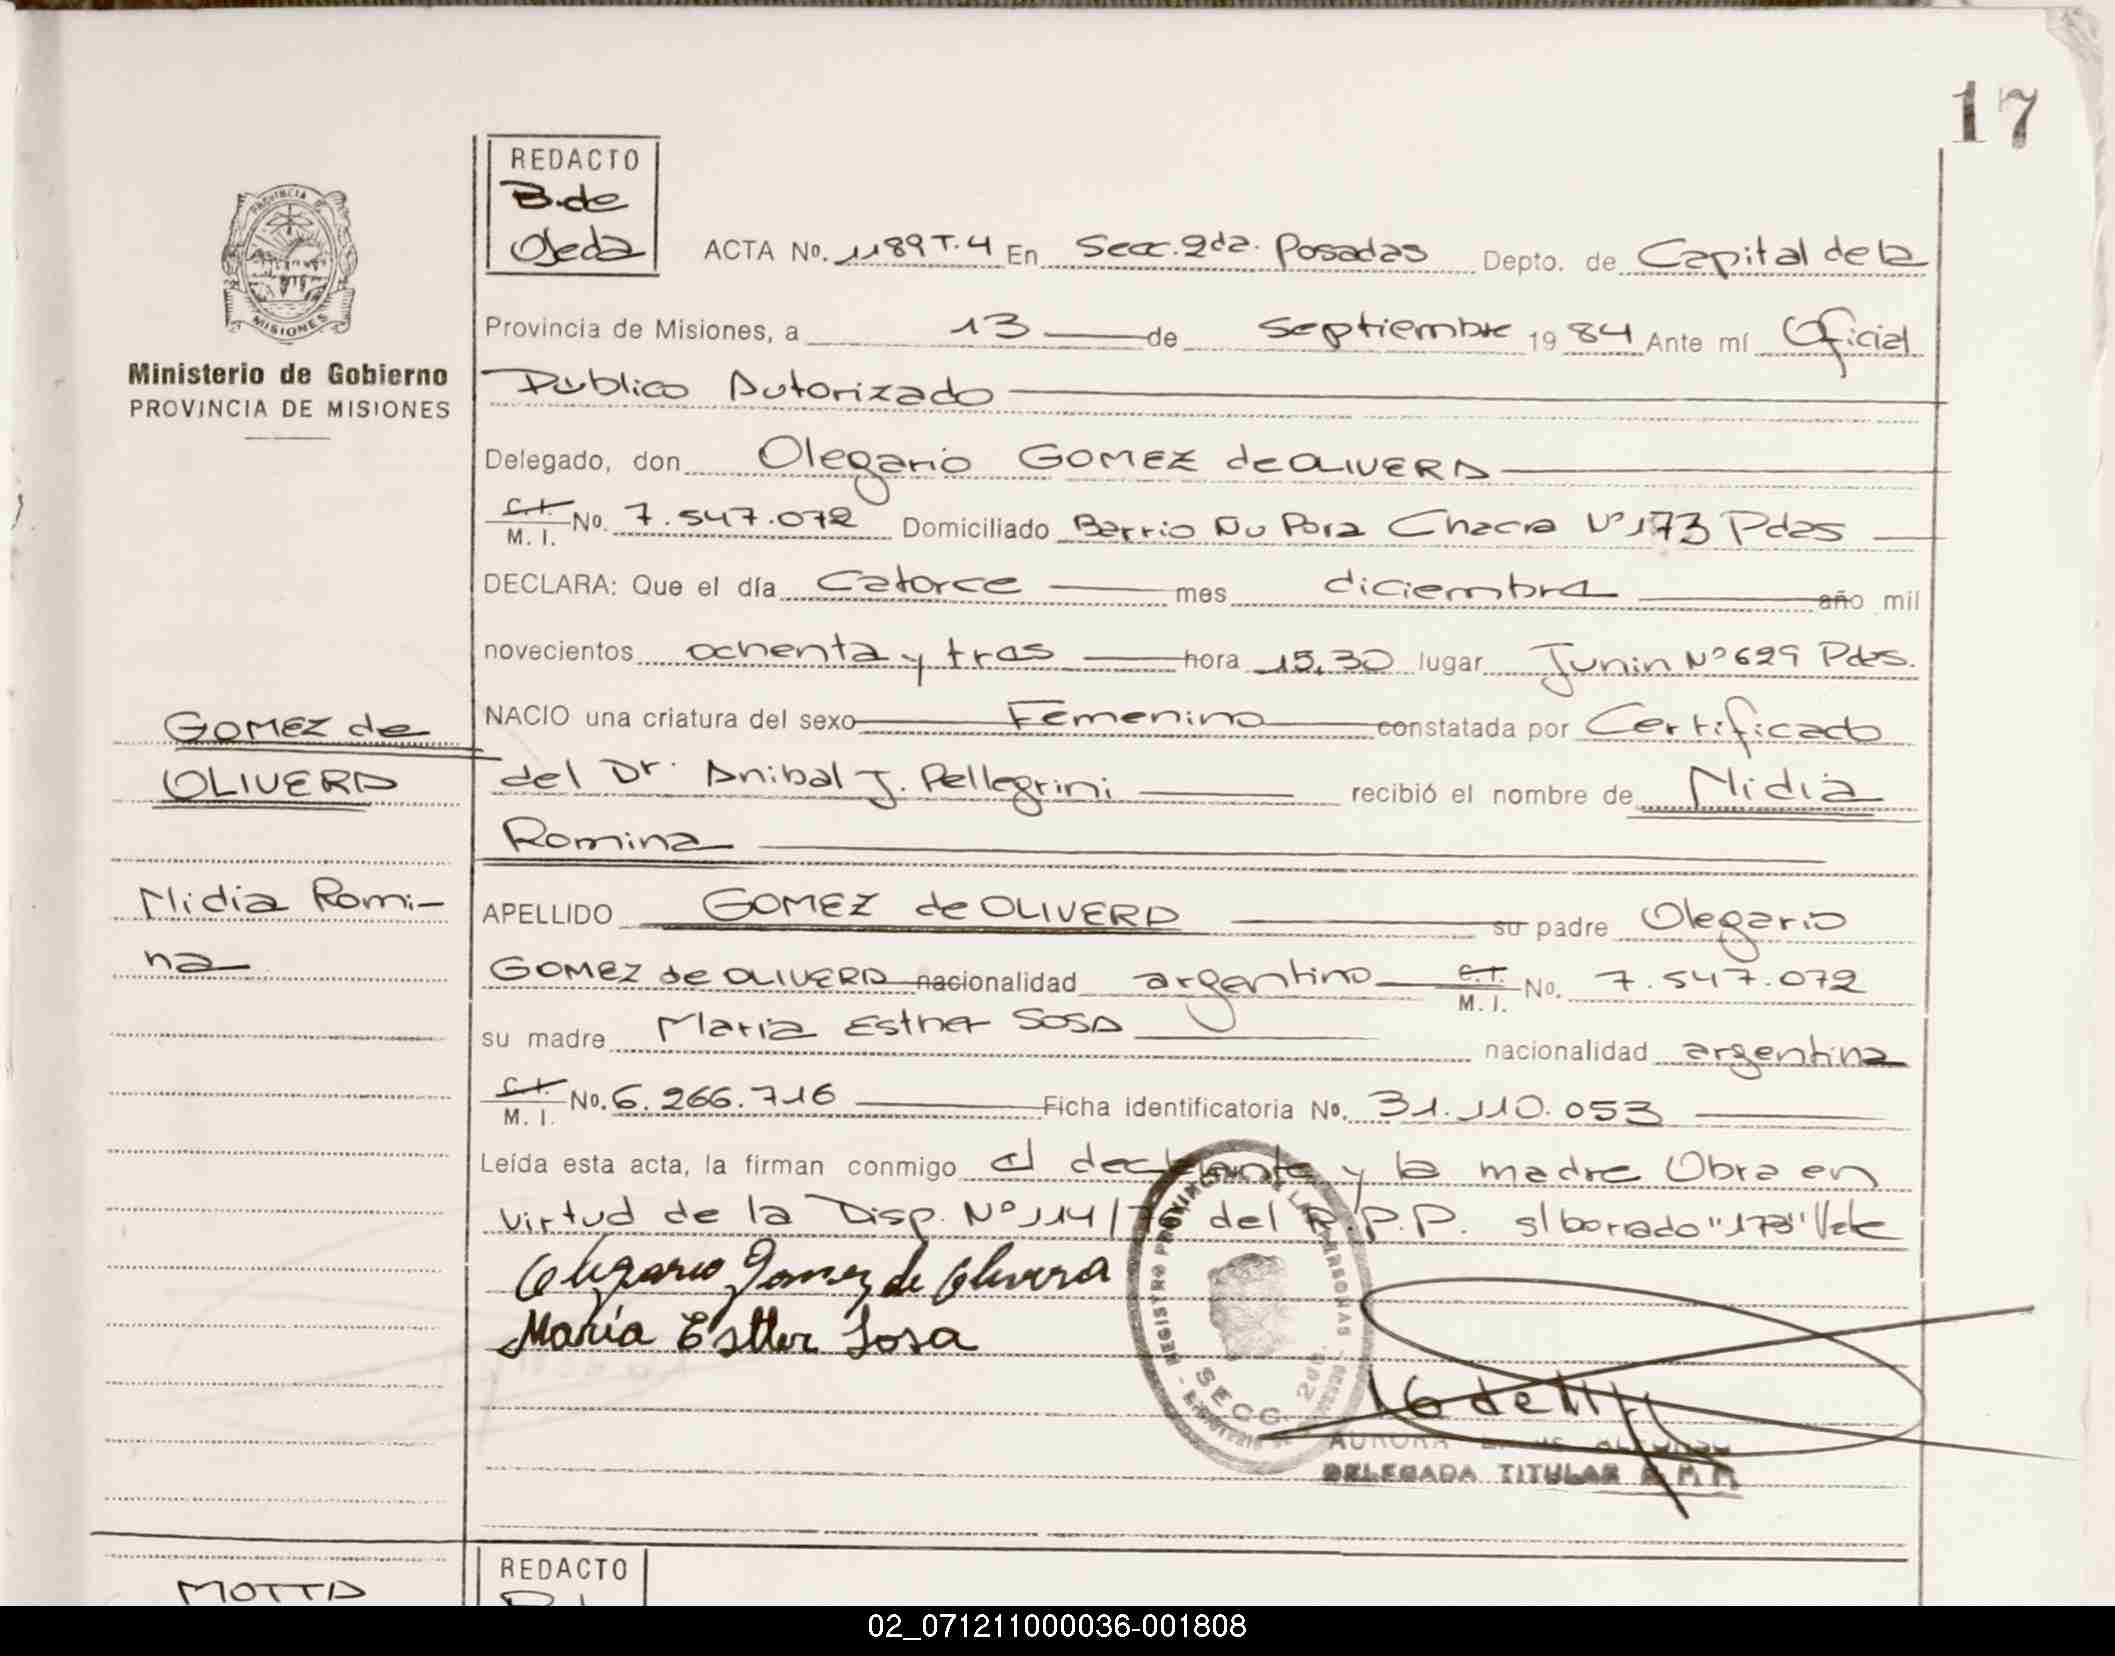 17
REDACTO
B. de
Ojeda
PROVINCIA DE
MISIONES
Ministerio de Gobierno
PROVINCIA DE MISIONES
ACTA No. 1189 T. 4 En Secc. 2da. Posadas Depto. de Capital de la
Provincia de Misiones, a 13 de Septiembre 1984 Ante mí Oficial
Publico Autorizado
Delegado, don Olegario GOMEZ de OLIVERA
C.I. M. I. No. 7.547.072 Domiciliado Barrio Ñu Pora Chacra Nº 173 Pdas
DECLARA: Que el día Catorce mes diciembre año mil
novecientos ochenta y tres hora 15,30 lugar Junin Nº 629 Pdas.
NACIO una criatura del sexo Femenino constatada por Certificado
del Dr. Anibal J. Pellegrini recibió el nombre de Nidia
Romina
APELLIDO GOMEZ de OLIVERA su padre Olegario
GOMEZ de OLIVERA nacionalidad argentino C.I. M. I. No. 7.547.072
su madre Maria Esther SOSA nacionalidad argentina
C.I. M. I. No. 6.266.716 Ficha identificatoria No. 31.110.053
Leída esta acta, la firman conmigo el declarante y la madre Obra en
virtud de la Disp. Nº 114/ del R.P.P. s/borrado "173" Vale
Olegario Gomez de Olivera
María Esther Sosa
GOMEZ de
OLIVERA
Nidia Romi-
na
REGISTRO PROVINCIAL DE LAS PERSONAS
SECC. 2da.
AURORA
DELEGADA TITULAR
MOTTA
REDACTO
02_071211000036-001808